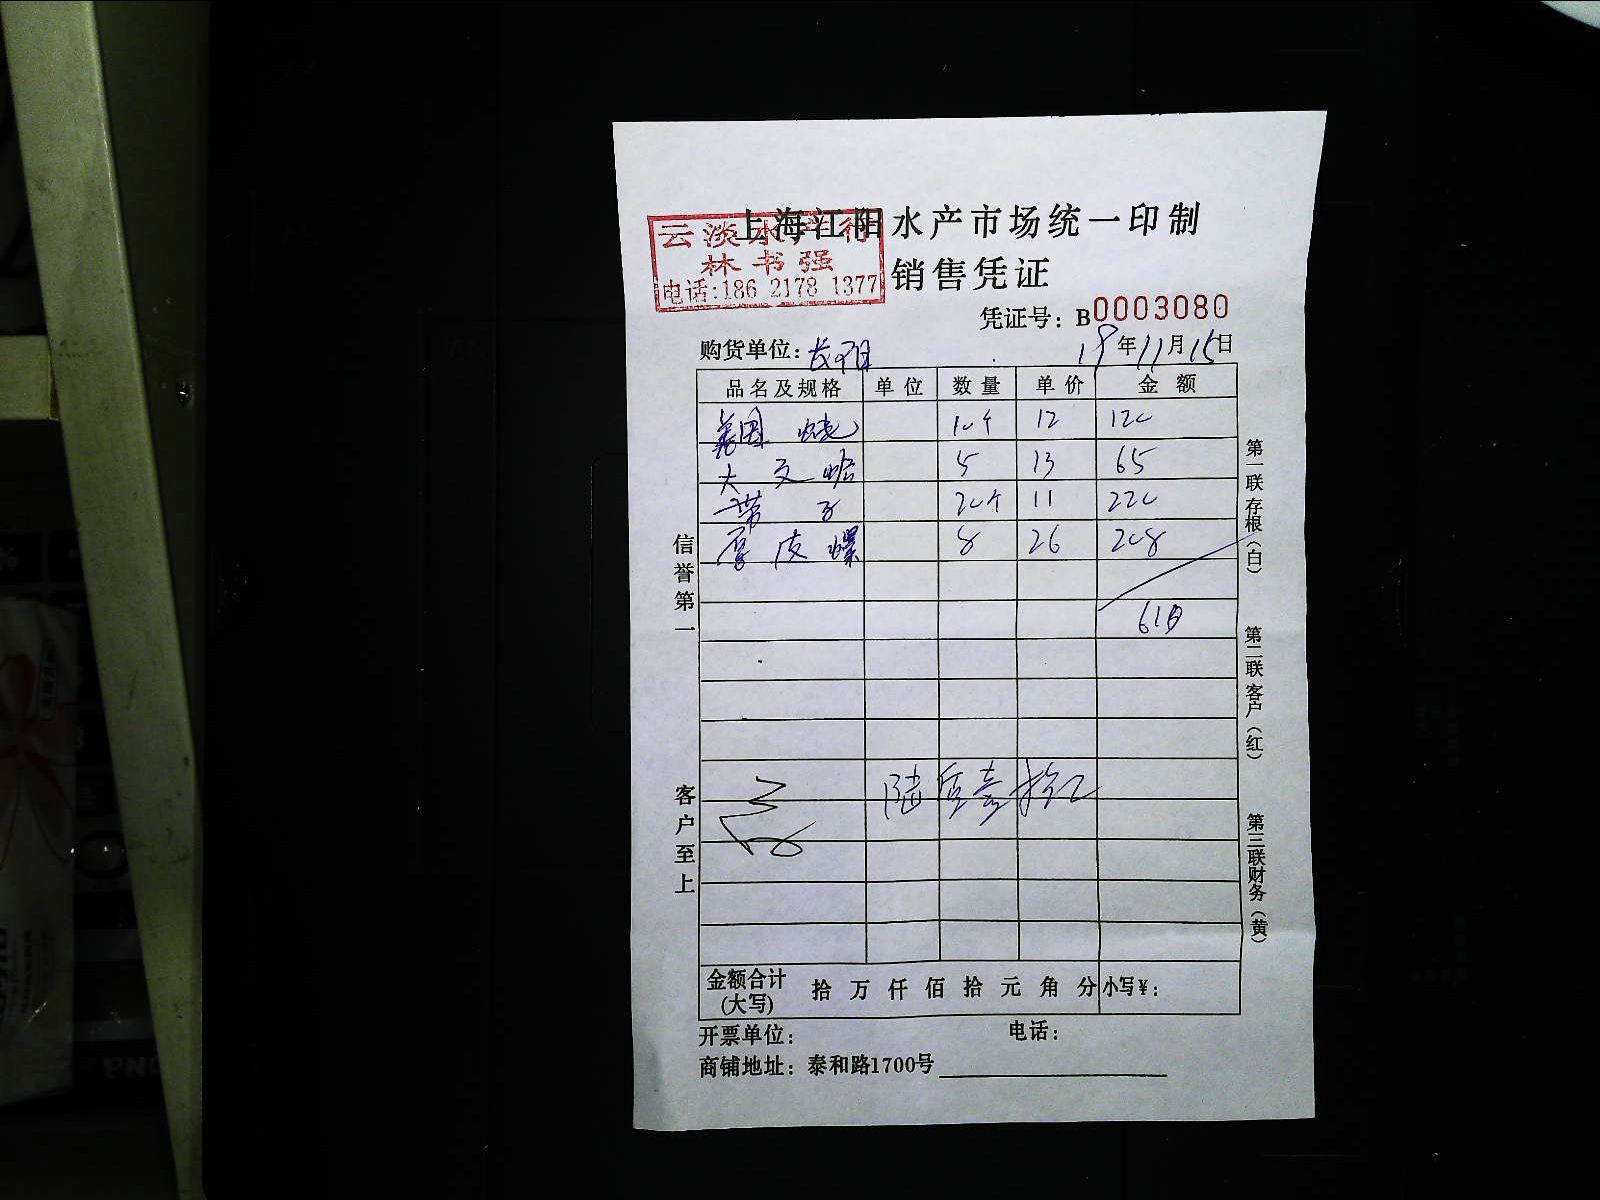 上海江阳水产市场统一印制
云淡水产行
林书强
电话:186 2178 1377
销售凭证
凭证号: B0003080
购货单位:
19年11月15日
品名及规格 单位 数量 单价 金额
美国 10个 12 120
大文蛤 5 13 65
带子 20个 11 220
厚皮螺 8 26 208
613
陆佰壹拾
信誉第一
客户至上
第一联存根(白)
第二联客户(红)
第三联财务(黄)
金额合计(大写) 拾 万 仟 佰 拾 元 角 分 小写¥:
开票单位: 电话:
商铺地址: 泰和路1700号